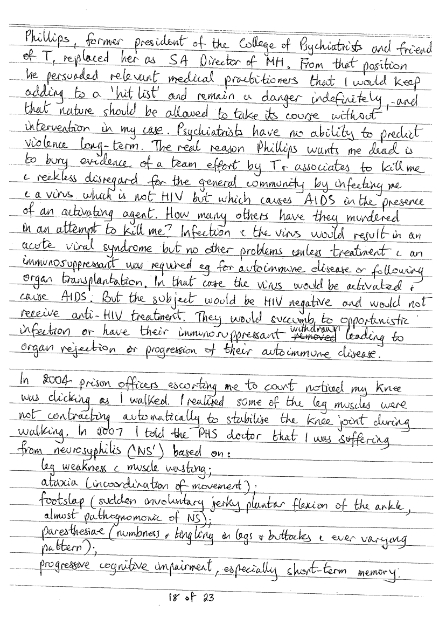 Phillips, former president of the College of Psychiatrists and friend
of T, replaced her as SA Director of MH. From that position
he persuaded relevant medical practitioners that I would keep
adding to a 'hit list' and remain a danger indefinitely, and
that nature should be allowed to take its course without
intervention in my case. Psychiatrists have no ability to predict
violence long-term. The real reason Phillips wants me dead is
to bury evidence of a team effort by T & associates to kill me
c reckless disregard for the general community by infecting me
c a virus which is not HIV but which causes AIDS in the presence
of an activating agent. How many others have they murdered
in an attempt to kill me? Infection c the virus would result in an
acute viral syndrome but no other problems unless treatment c an
immunosuppressant was required eg for autoimmune disease or following
organ transplantation. In that case the virus would be activated &
cause AIDS. But the subject would be HIV negative and would not
receive anti-HIV treatment. They would succumb to opportunistic
infection or have their immunosuppressant withdrawn leading to
organ rejection or progression of their autoimmune disease.
In 2004 prison officers escorting me to court noticed my knee
was clicking as I walked. I realised some of the leg muscles were
not contracting automatically to stabilise the knee joint during
walking. In 2007 I told the PHS doctor that I was suffering
from neurosyphilis ('NS') based on:
leg weakness c muscle wasting;
ataxia (incoordination of movement);
footslap (sudden involuntary jerky plantar flexion of the ankle,
almost pathognomonic of NS);
paresthesiae (numbness & tingling in legs & buttocks c ever varying
pattern);
progressive cognitive impairment, especially short-term memory.
18 of 23